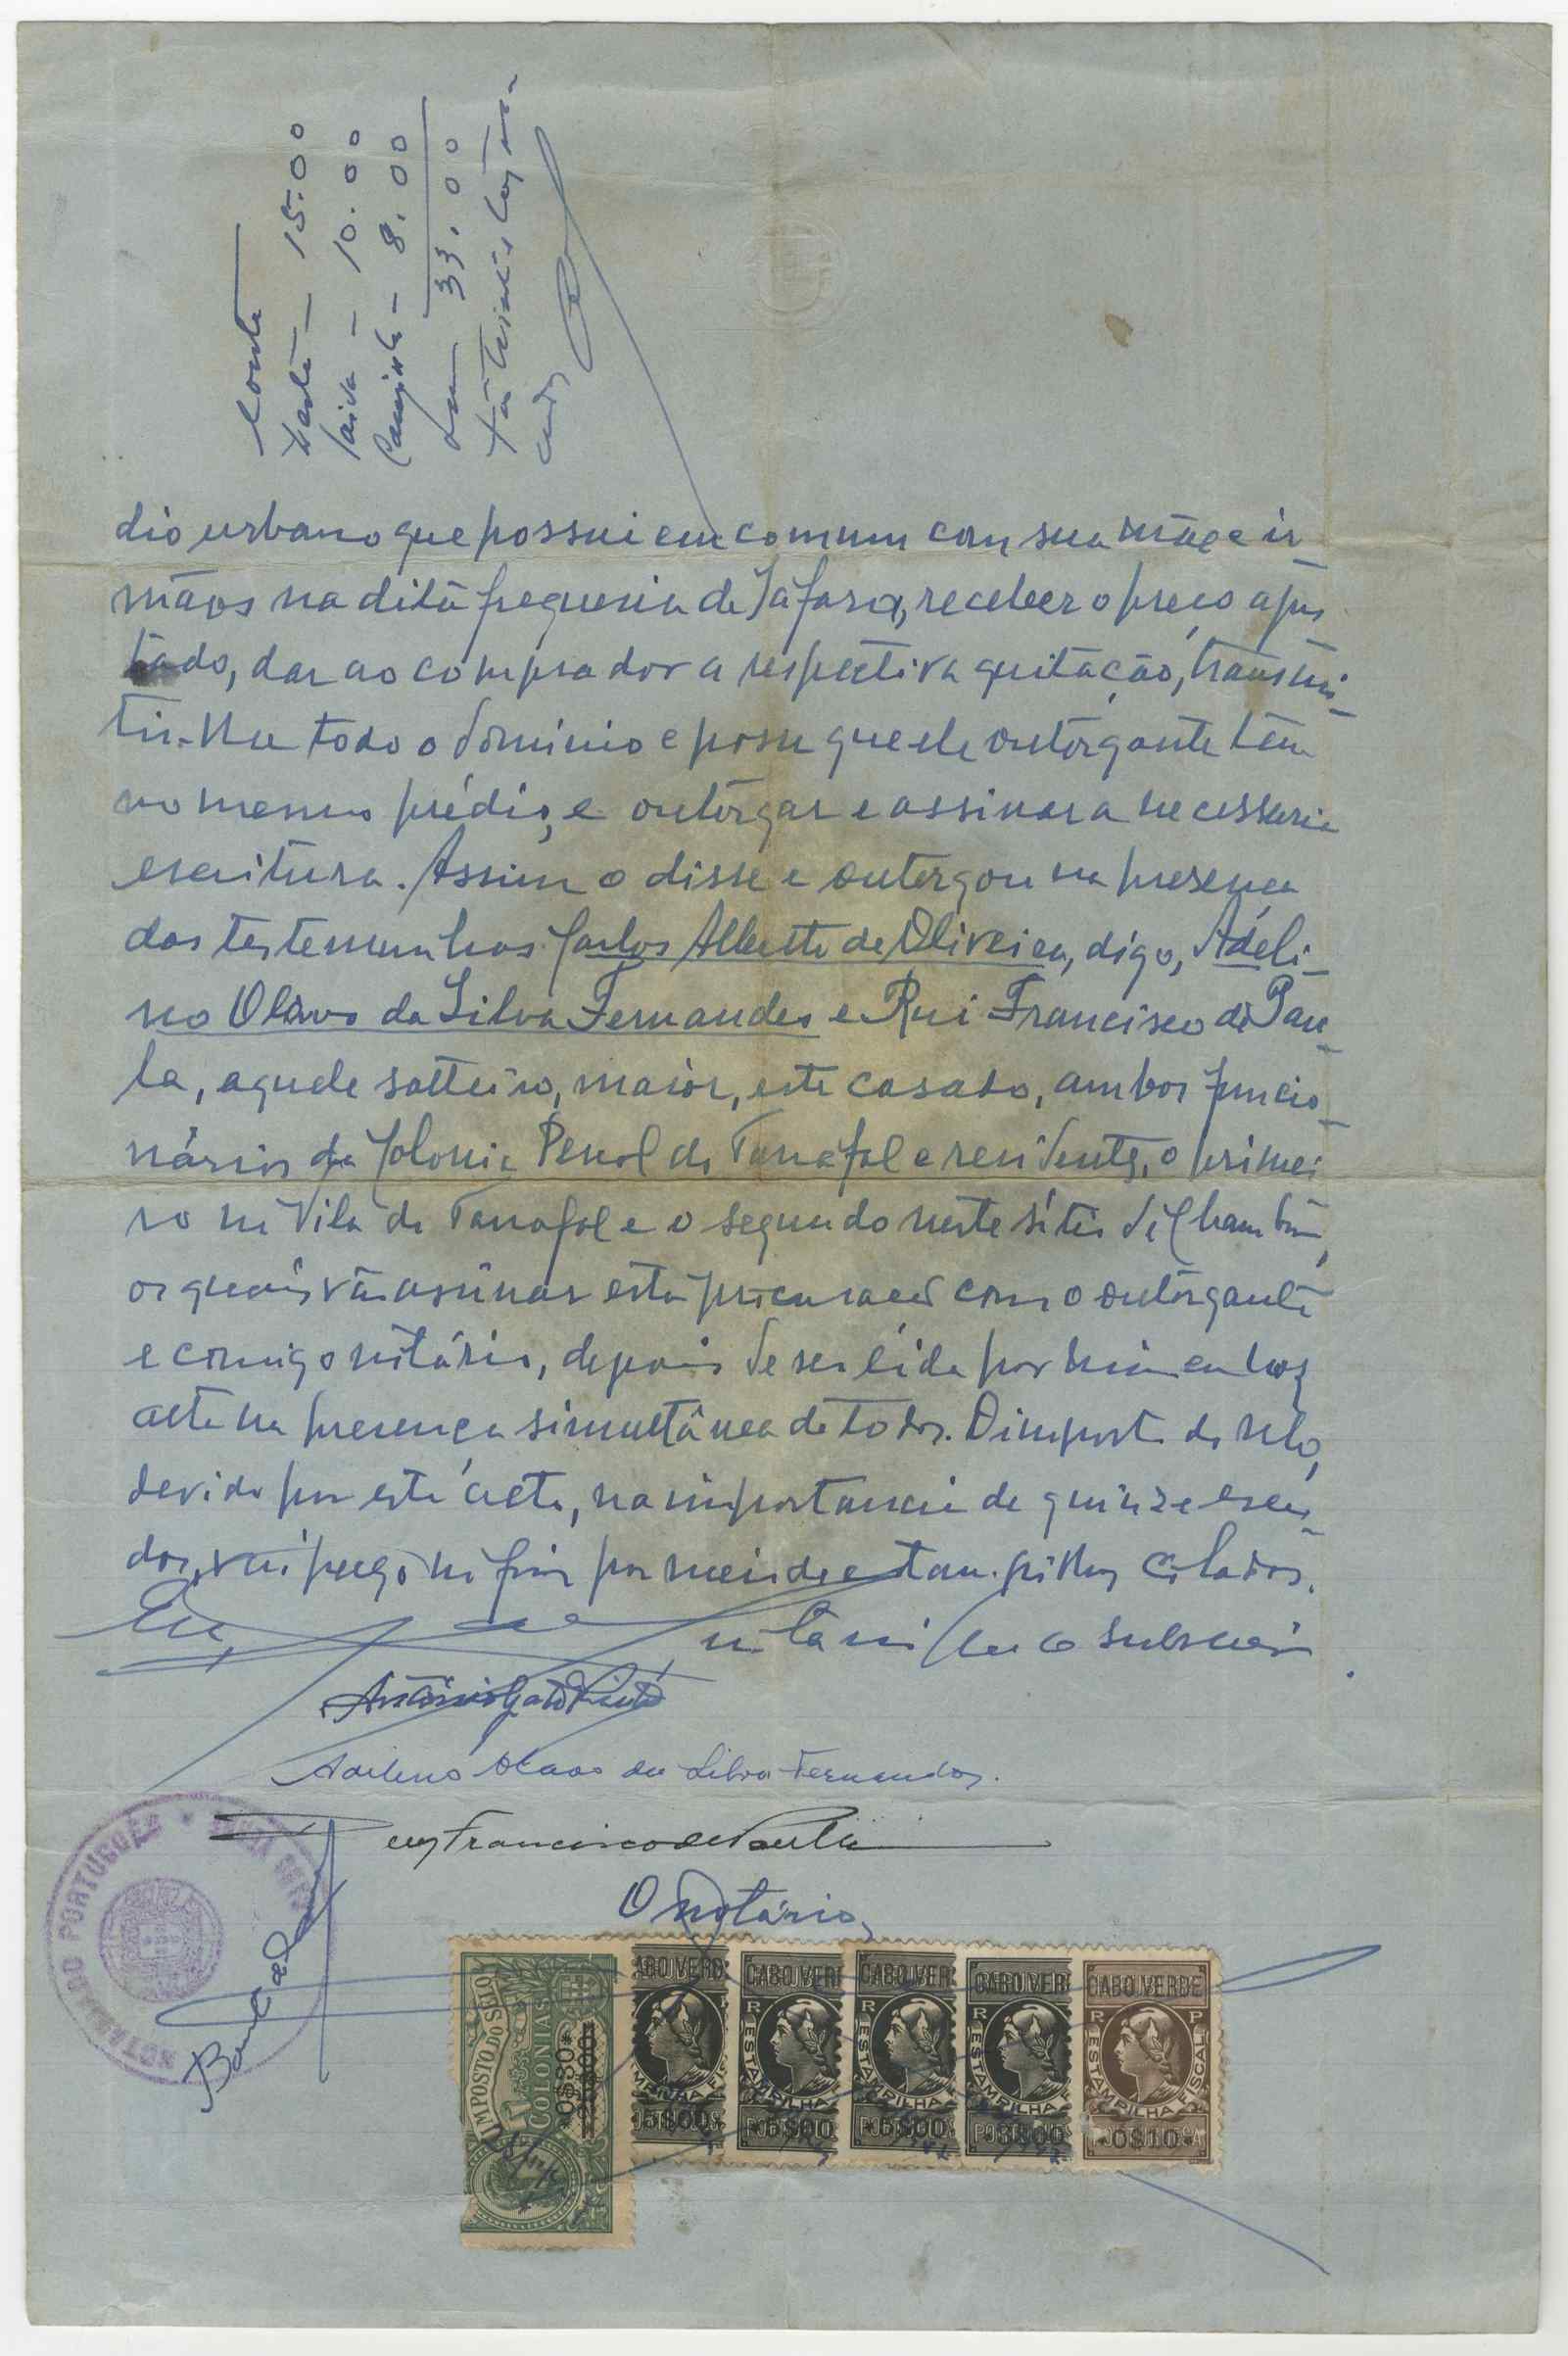 Conta
Acto — 15.00
Taixa — 10.00
Caminho — 8.00
Som 33.00
São trinta e três
escudos
dio urbano que possui em comum com sua mãe e ir-
mãos na dita freguesia de Safara, receber o preço ajus-
tado, dar ao comprador a respectiva quitação, transmi-
tir-lhe todo o dominio e posse que ele outorgante tem
no mesmo prédio, e outorgar e assinar a necessaria
escritura. Assim o disse e outorgou na presença
das testemunhas Carlos Alberto de Oliveira, digo, Adeli-
no Olavo da Silva Fernandes e Rui Francisco de Pau-
la, aquele solteiro, maior, este casado, ambos funcio-
nários da Colonia Penal do Tarrafal e residentes, o primei-
ro na Vila do Tarrafal e o segundo neste sítio de Chambom,
os quais vão assinar esta procuração com o outorgante
e comigo notário, depois de ser lida por mim em voz
alta na presença simultânea de todos. O imposto do selo,
devido por este acto, na importancia de quinze escu-
dos, vai pago no fim por meio de estampilhas coladas.
Eu, notario que o subscrevi.
António Gato Pinto
Adelino Olavo da Silva Fernandes.
Ruy Francisco de Paula
O notário,
NOTARIADO PORTUGUÊS
IMPOSTO DO SELO
COLONIAS
0$30
CABO VERDE
ESTAMPILHA FISCAL
5$00
CABO VERDE
ESTAMPILHA
5$00
CABO VERDE
ESTAMPILHA
5$00
CABO VERDE
ESTAMPILHA
3$00
CABO VERDE
R P
ESTAMPILHA FISCAL
0$10